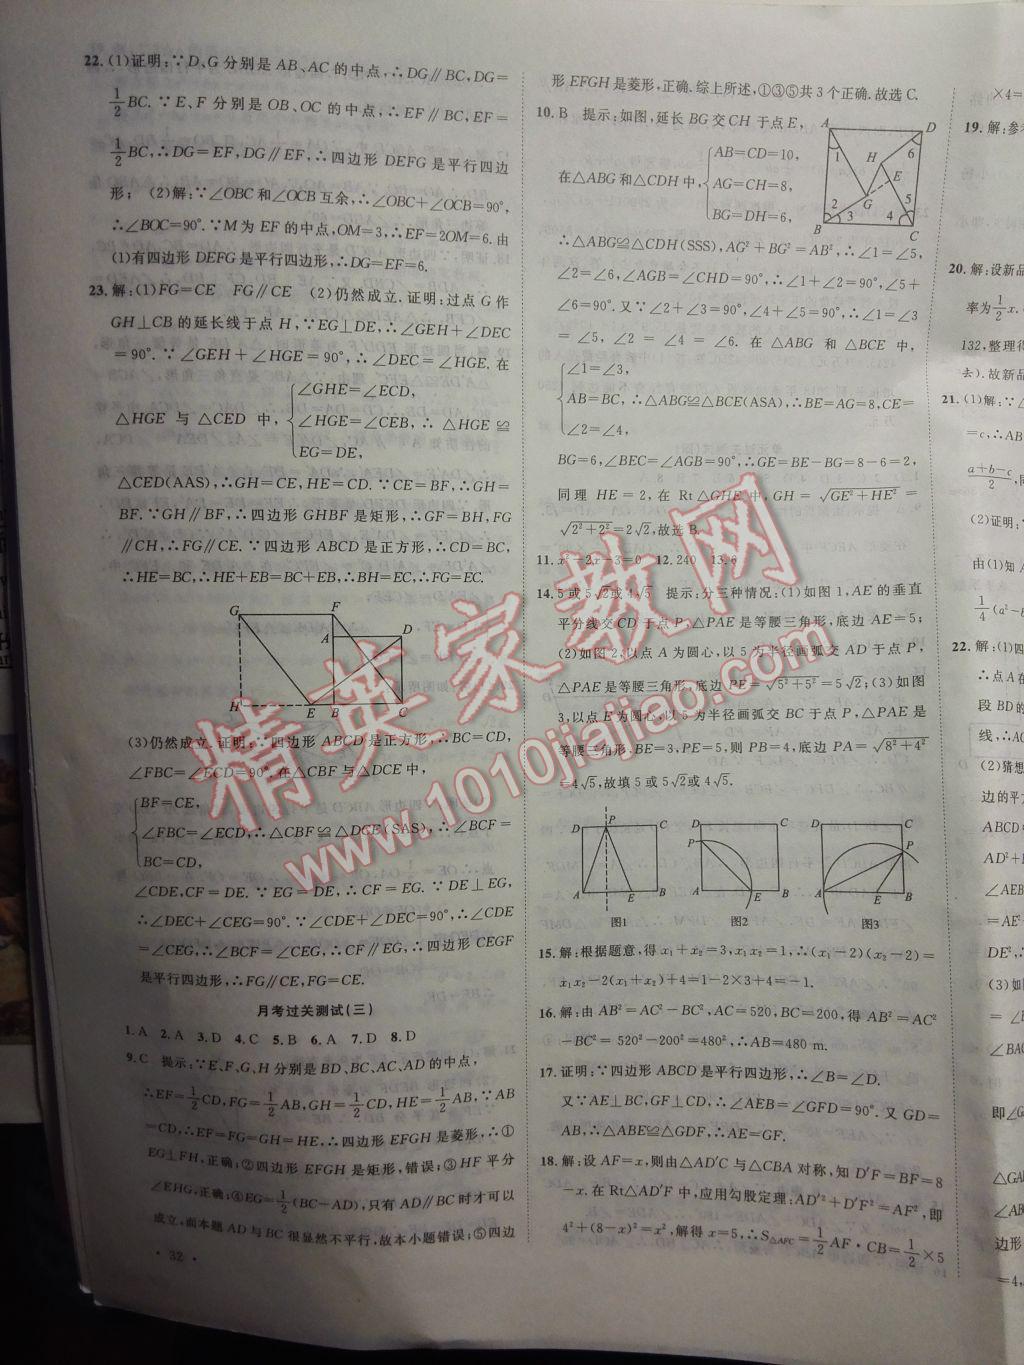 22. (1)证明:∵D、G分别是AB、AC的中点,∴DG∥BC,DG=
1/2BC.∵E、F分别是OB、OC的中点,∴EF∥BC,EF=
1/2BC,∴DG=EF,DG∥EF,∴四边形DEFG是平行四边
形; (2)解:∵∠OBC和∠OCB互余,∴∠OBC+∠OCB=90°,
∴∠BOC=90°.∵M为EF的中点,OM=3,∴EF=2OM=6.由
(1)有四边形DEFG是平行四边形,∴DG=EF=6.
23. 解:(1)FG=CE FG∥CE (2)仍然成立.证明:过点G作
GH⊥CB的延长线于点H,∵EG⊥DE,∴∠GEH+∠DEC
=90°.∵∠GEH+∠HGE=90°,∴∠DEC=∠HGE.在
△HGE与△CED中,{∠GHE=∠ECD,
∠HGE=∠CEB,∴△HGE≌
EG=DE,
△CED(AAS),∴GH=CE,HE=CD.∵CE=BF,∴GH=
BF.∵GH∥BF,∴四边形GHBF是矩形,∴GF=BH,FG
∥CH,∴FG∥CE.∵四边形ABCD是正方形,∴CD=BC,
∴HE=BC,∴HE+EB=BC+EB,∴BH=EC,∴FG=EC.
G F
A D
H E B C
(3)仍然成立.证明:∵四边形ABCD是正方形,∴BC=CD,
∠FBC=∠ECD=90°.在△CBF与△DCE中,
{BF=CE,
∠FBC=∠ECD,∴△CBF≌△DCE(SAS),∴∠BCF=
BC=CD,
∠CDE,CF=DE.∵EG=DE,∴CF=EG.∵DE⊥EG,
∴∠DEC+∠CEG=90°.∵∠CDE+∠DEC=90°,∴∠CDE
=∠CEG,∴∠BCF=∠CEG,∴CF∥EG,∴四边形CEGF
是平行四边形,∴FG∥CE,FG=CE.
月考过关测试(三)
1. A 2. A 3. D 4. C 5. B 6. A 7. D 8. D
9. C 提示:∵E、F、G、H分别是BD、BC、AC、AD的中点,
∴EF=1/2CD,FG=1/2AB,GH=1/2CD,HE=1/2AB,∵AB
=CD,∴EF=FG=GH=HE,∴四边形EFGH是菱形,∴①
EG⊥FH,正确;②四边形EFGH是矩形,错误;③HF平分
∠EHG,正确;④EG=1/2(BC-AD),只有AD∥BC时才可以
成立,而本题AD与BC很显然不平行,故本小题错误;⑤四边
· 32 ·
形EFGH是菱形,正确.综上所述,①③⑤共3个正确.故选C.
10. B 提示:如图,延长BG交CH于点E,
在△ABG和△CDH中,{AB=CD=10,
AG=CH=8,
BG=DH=6,
A D
1 H 6
E
G 5
2 3 4
B C
∴△ABG≌△CDH(SSS),AG²+BG²=AB²,∴∠1=∠5,
∠2=∠6,∠AGB=∠CHD=90°,∴∠1+∠2=90°,∠5+
∠6=90°.又∵∠2+∠3=90°,∠4+∠5=90°,∴∠1=∠3
=∠5,∠2=∠4=∠6.在△ABG和△BCE中,
{∠1=∠3,
AB=BC,∴△ABG≌△BCE(ASA),∴BE=AG=8,CE=
∠2=∠4,
BG=6,∠BEC=∠AGB=90°,∴GE=BE-BG=8-6=2,
同理HE=2,在Rt△GHE中,GH=√(GE²+HE²)=
√(2²+2²)=2√2,故选B.
11. x²-2x-3=0 12. 240 13. 6
14. 5或5√2或4√5 提示:分三种情况:(1)如图1,AE的垂直
平分线交CD于点P,△PAE是等腰三角形,底边AE=5;
(2)如图2,以点A为圆心,以5为半径画弧交AD于点P,
△PAE是等腰三角形,底边PE=√(5²+5²)=5√2;(3)如图
3,以点E为圆心,以5为半径画弧交BC于点P,△PAE是
等腰三角形,BE=3,PE=5,则PB=4,底边PA=√(8²+4²)
=4√5,故填5或5√2或4√5.
D P C D C D C
P P
A E B A E B A E B
图1 图2 图3
15. 解:根据题意,得x₁+x₂=3,x₁x₂=1,∴(x₁-2)(x₂-2)=
x₁x₂-2(x₁+x₂)+4=1-2×3+4=-1.
16. 解:由AB²=AC²-BC²,AC=520,BC=200,得AB²=AC²
-BC²=520²-200²=480²,∴AB=480 m.
17. 证明:∵四边形ABCD是平行四边形,∴∠B=∠D.
又∵AE⊥BC,GF⊥CD,∴∠AEB=∠GFD=90°.又GD=
AB,∴△ABE≌△GDF,∴AE=GF.
18. 解:设AF=x,则由△AD′C与△CBA对称,知D′F=BF=8
-x.在Rt△AD′F中,应用勾股定理:AD′²+D′F²=AF²,即
4²+(8-x)²=x²,解得x=5,∴S△AFC=1/2AF·CB=1/2×5
×4=
19. 解:参
20. 解:设新品
率为1/2x.
132,整理得
去).故新品
21. (1)解:∵
=c,∴AB
(a+b-c)/2,同
(2)证明:
由(1)知
1/4(a²-b
22. 解:(1)四
∴点A在
段BD的
线,∴AC
(2)猜想
边的平方
ABCD
AD²+
∠AEB
=AE²
DE²,
(3)如图
∠BAC
即∠G
△GA
∠AB
边形
=4,
精英家教网
www.1010jiajiao.com